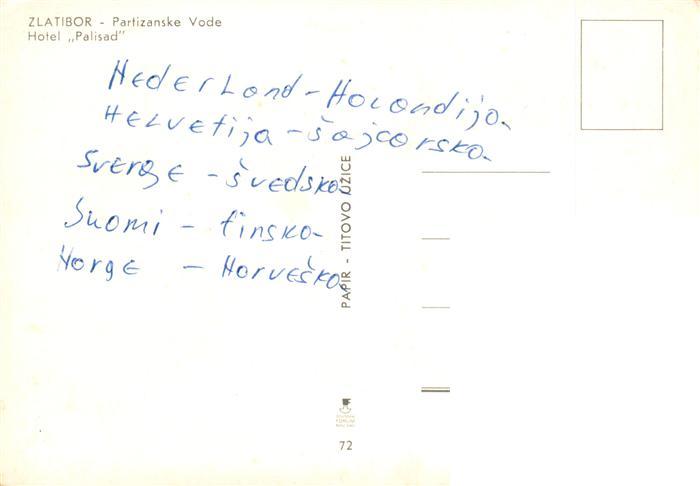 ZLATIBOR - Partizanske Vode
Hotel „Palisad"
Nederland - Holandija
Helvetija - Šajcarska
Sverge - švedska
Suomi - finska
Norge - Norveška
PAPIR - TITOVO UŽICE
72